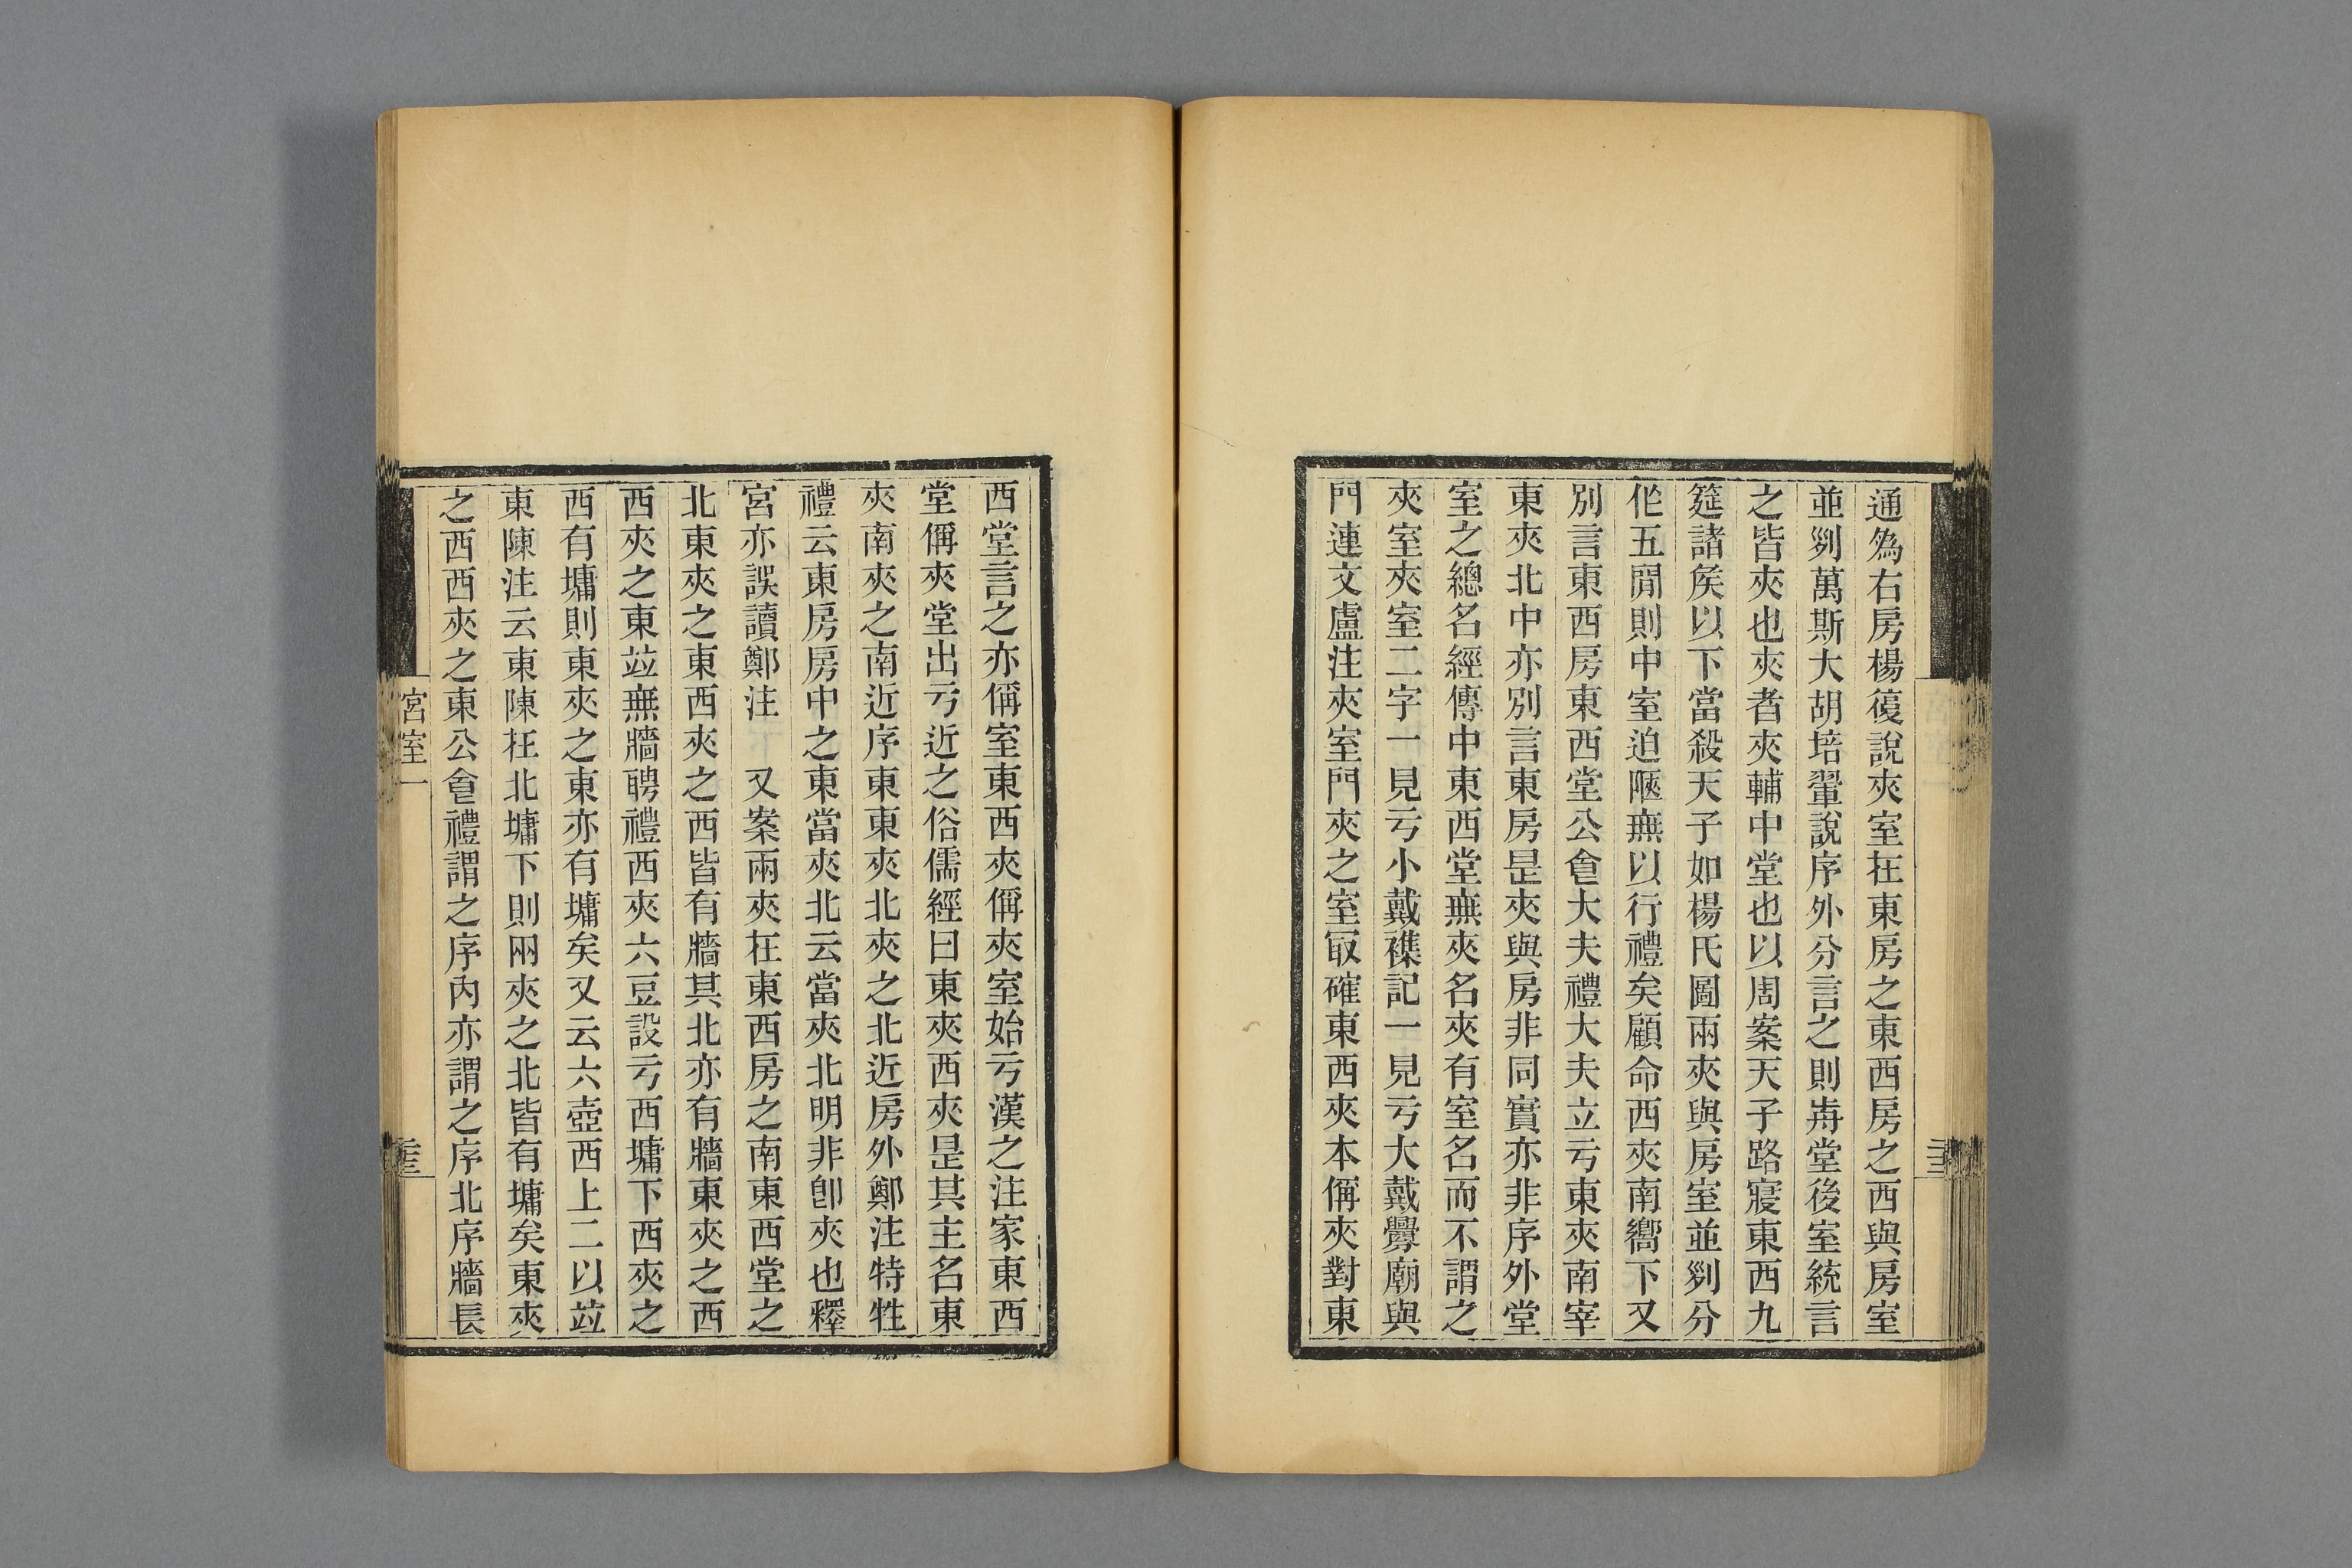 通爲右房楊復說夾室在東房之東西房之西與房室
並列萬斯大胡培翬說序外分言之則歬堂後室統言
之皆夾也夾者夾輔中堂也以周案天子路寢東西九
筵諸矦以下當殺天子如楊氏圖兩夾與房室並列分
作五閒則中室迫陿無以行禮矣顧命西夾南嚮下又
別言東西房東西堂公食大夫禮大夫立亏東夾南宰
東夾北中亦別言東房是夾與房非同實亦非序外堂
室之總名經傳中東西堂無夾名夾有室名而不謂之
夾室夾室二字一見亏小戴襍記一見亏大戴釁廟與
門連文盧注夾室門夾之室冣確東西夾本偁夾對東
西堂言之亦偁室東西夾偁夾室始亏漢之注家東西
堂偁夾堂出亏近之俗儒經曰東夾西夾是其主名東
夾南夾之南近序東東夾北夾之北近房外鄭注特牲
禮云東房房中之東當夾北云當夾北明非卽夾也釋
宮亦誤讀鄭注　又案兩夾在東西房之南東西堂之
北東夾之東西夾之西皆有牆其北亦有牆東夾之西
西夾之東竝無牆聘禮西夾六豆設亏西墉下西夾之
西有墉則東夾之東亦有墉矣又云六壺西上二以竝
東陳注云東陳在北墉下則兩夾之北皆有墉矣東夾
之西西夾之東公食禮謂之序內亦謂之序北序牆長
宮室一